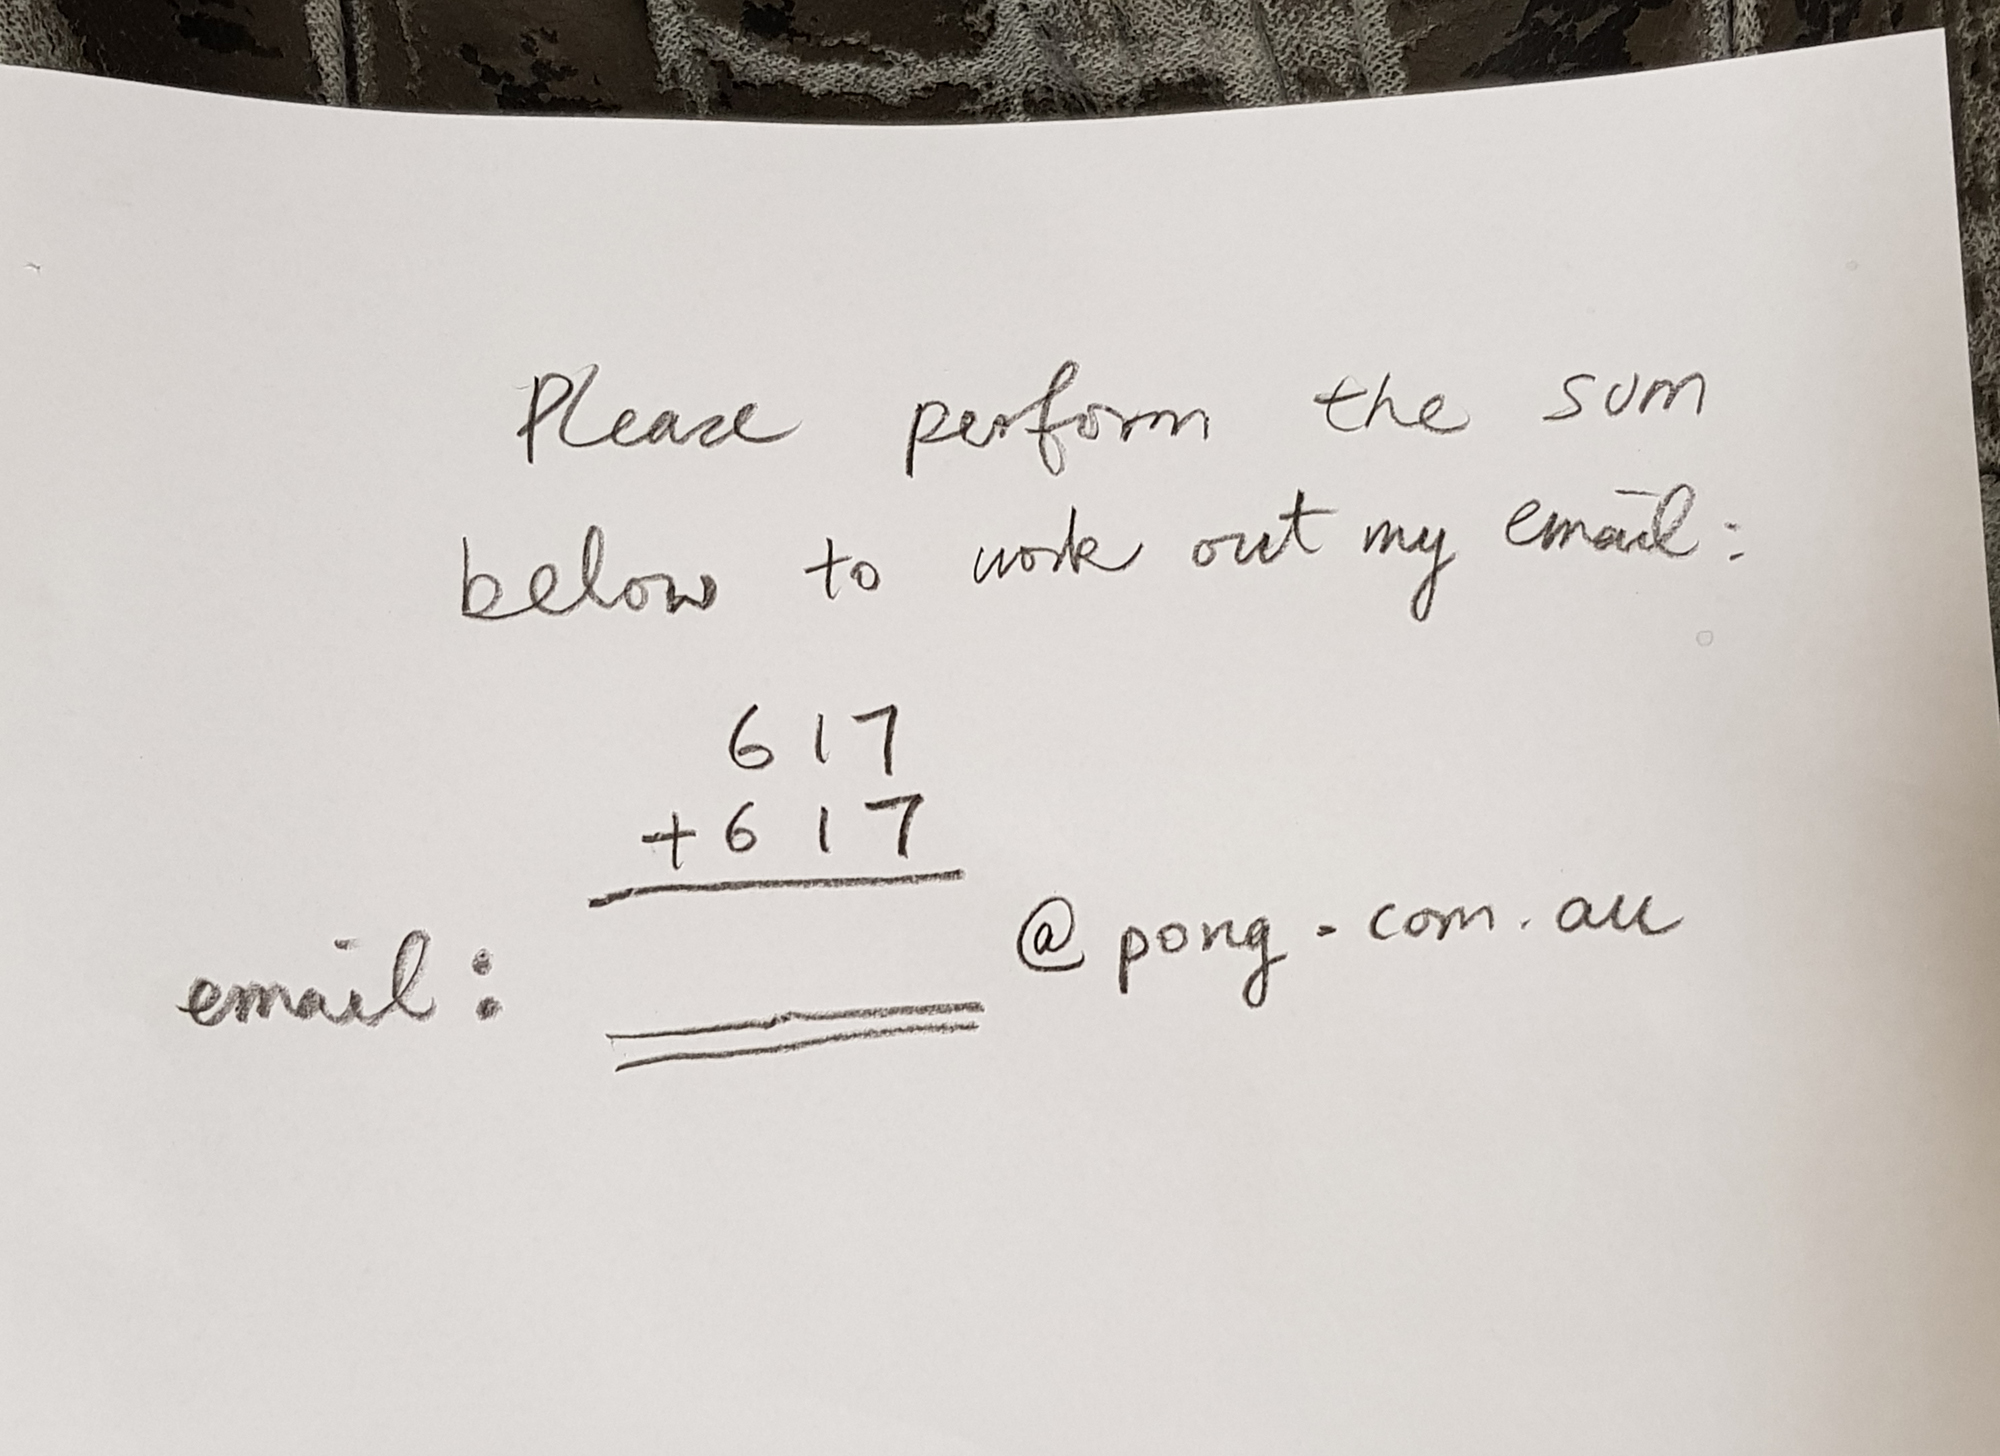 Please perform the sum
below to work out my email:
617
+617
@pong.com.au
email: